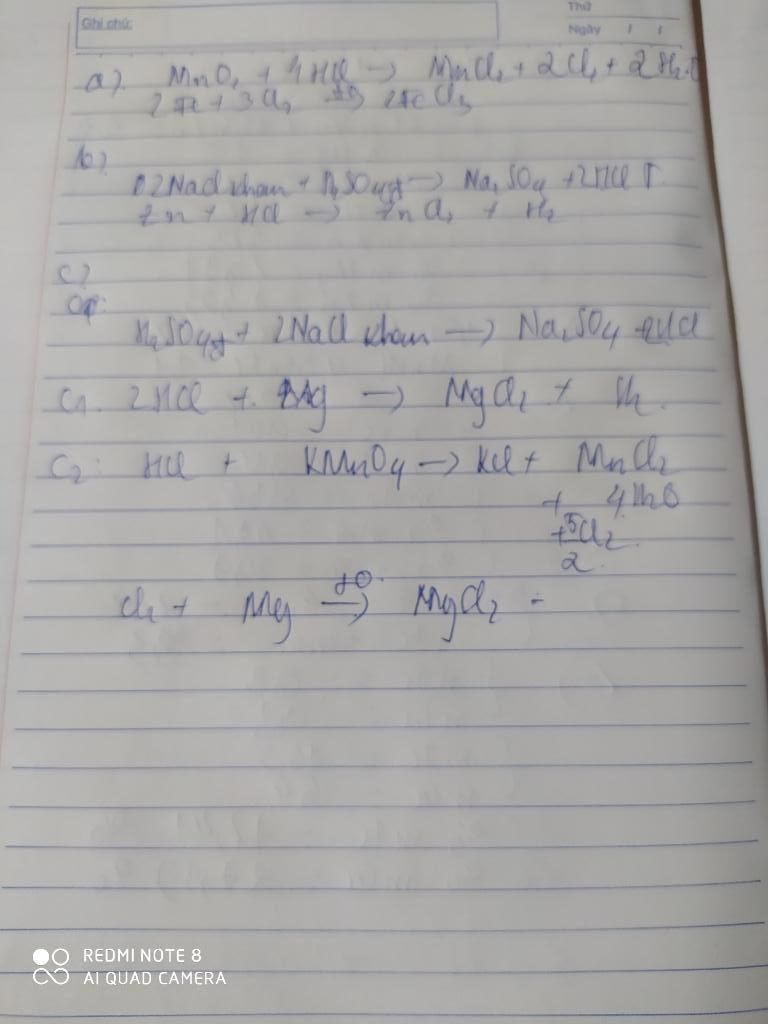 Ghi chú:
Thứ
Ngày / /
a). MnO2 + 4HCl → MnCl2 + 2Cl2 + 2H2O
2Fe + 3Cl2 t° → 2FeCl3
b)
2NaCl khan + H2SO4đ → Na2SO4 + 2HCl ↑
Zn + HCl → ZnCl2 + H2
c)
H2SO4đ + 2NaCl khan → Na2SO4 2HCl
C1. 2HCl + Mg → MgCl2 + H2.
C2: HCl + KMnO4 → KCl + MnCl2
+ 4H2O
+ 5Cl2
2.
Cl2 + Mg t° → MgCl2
REDMI NOTE 8
AI QUAD CAMERA